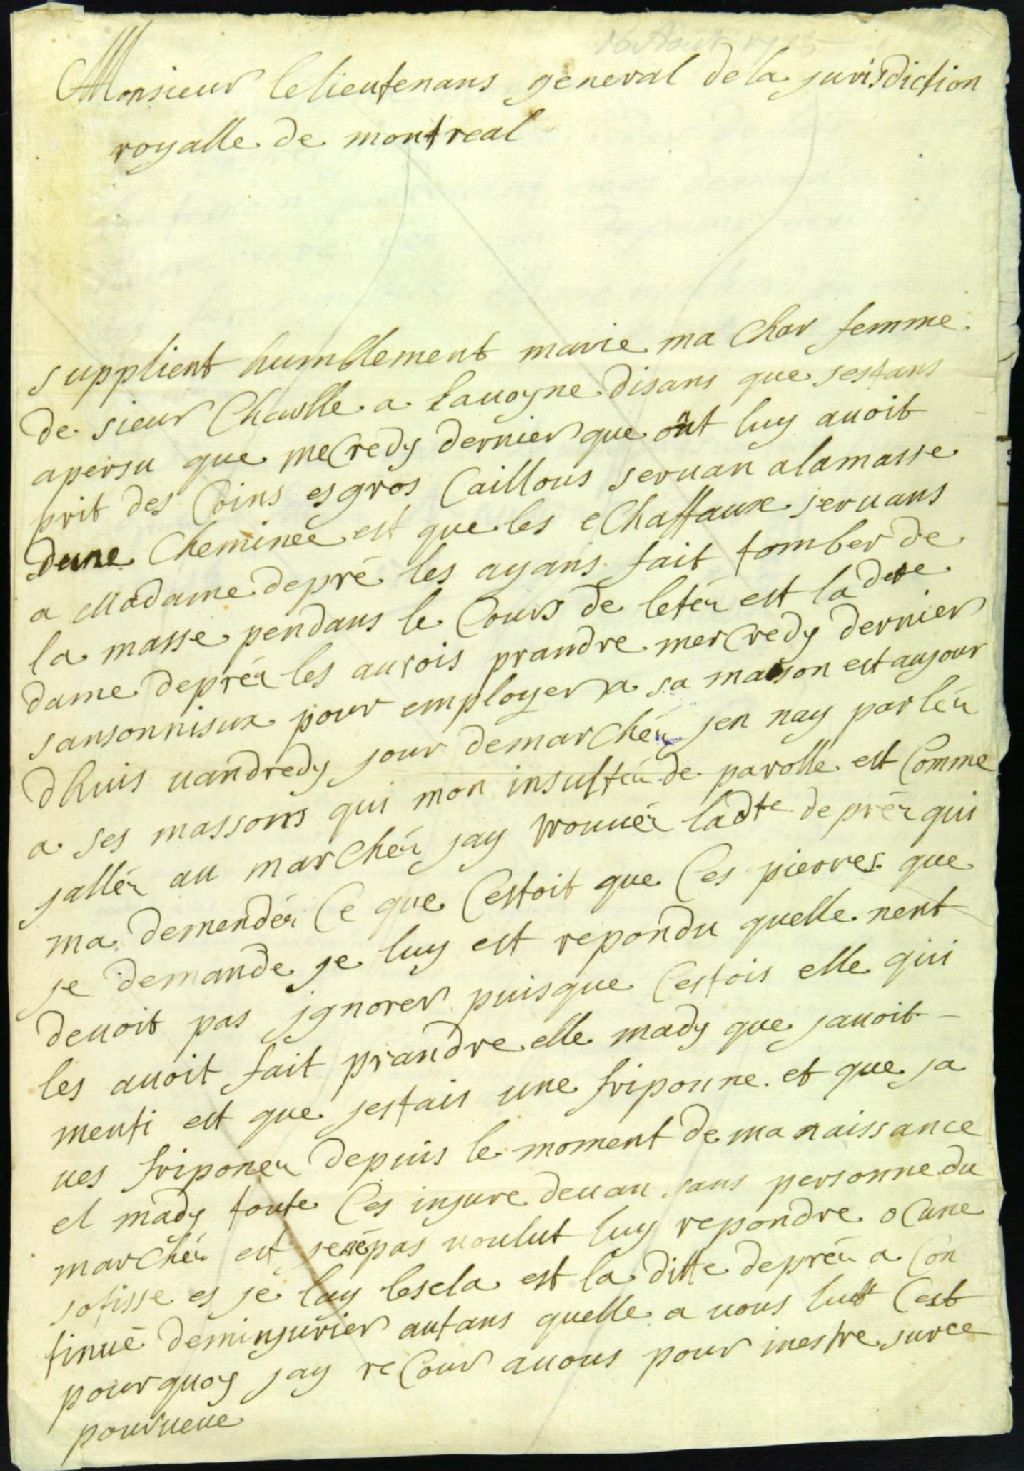 16 Aout 17
Monsieur le lieutenans general de la jurisdiction
royalle de montreal
supplient humblement marie ma char femme
de sieur Charlle a lavoyne disans que sestans
apersu que mecredy dernier que ont luy avoit
prit des Coins es gros Caillous servan a la masse
dune Cheminée est que les eChaffaux servans
a Madame depré les ayans fait tomber de
la masse pendans le Cours de letéz est la dte
dame depréz les aurois prandre mercredy dernier
sansonnisux pour employer a sa maison est aujour
dhuis vandredy jour demarchéz jen nay parléz
a ses massons qui mon insultéz de parolle est Comme
jalléz au marchéz jay trouvéz ladte depréz qui
ma demendéz Ce que Cestoit que Ces pierres que
je demande je luy est repondu quelle nent
devoit pas jgnorer puisque Cestois elle qui
les avoit fait prandre elle mady que javoit
menti est que jestais une friponne et que ja
ves friponez depuis le moment de ma naissance
el mady toute Ces injure devan sans personne du
marchéz est je népas voulut luy repondre ocune
sotisse es jé lay lesela est la ditte depréz a Con
tinué deminjurier autans quelle a vous lutt Cest
pourquoy jay reCour avous pour inestre surce
pourveue